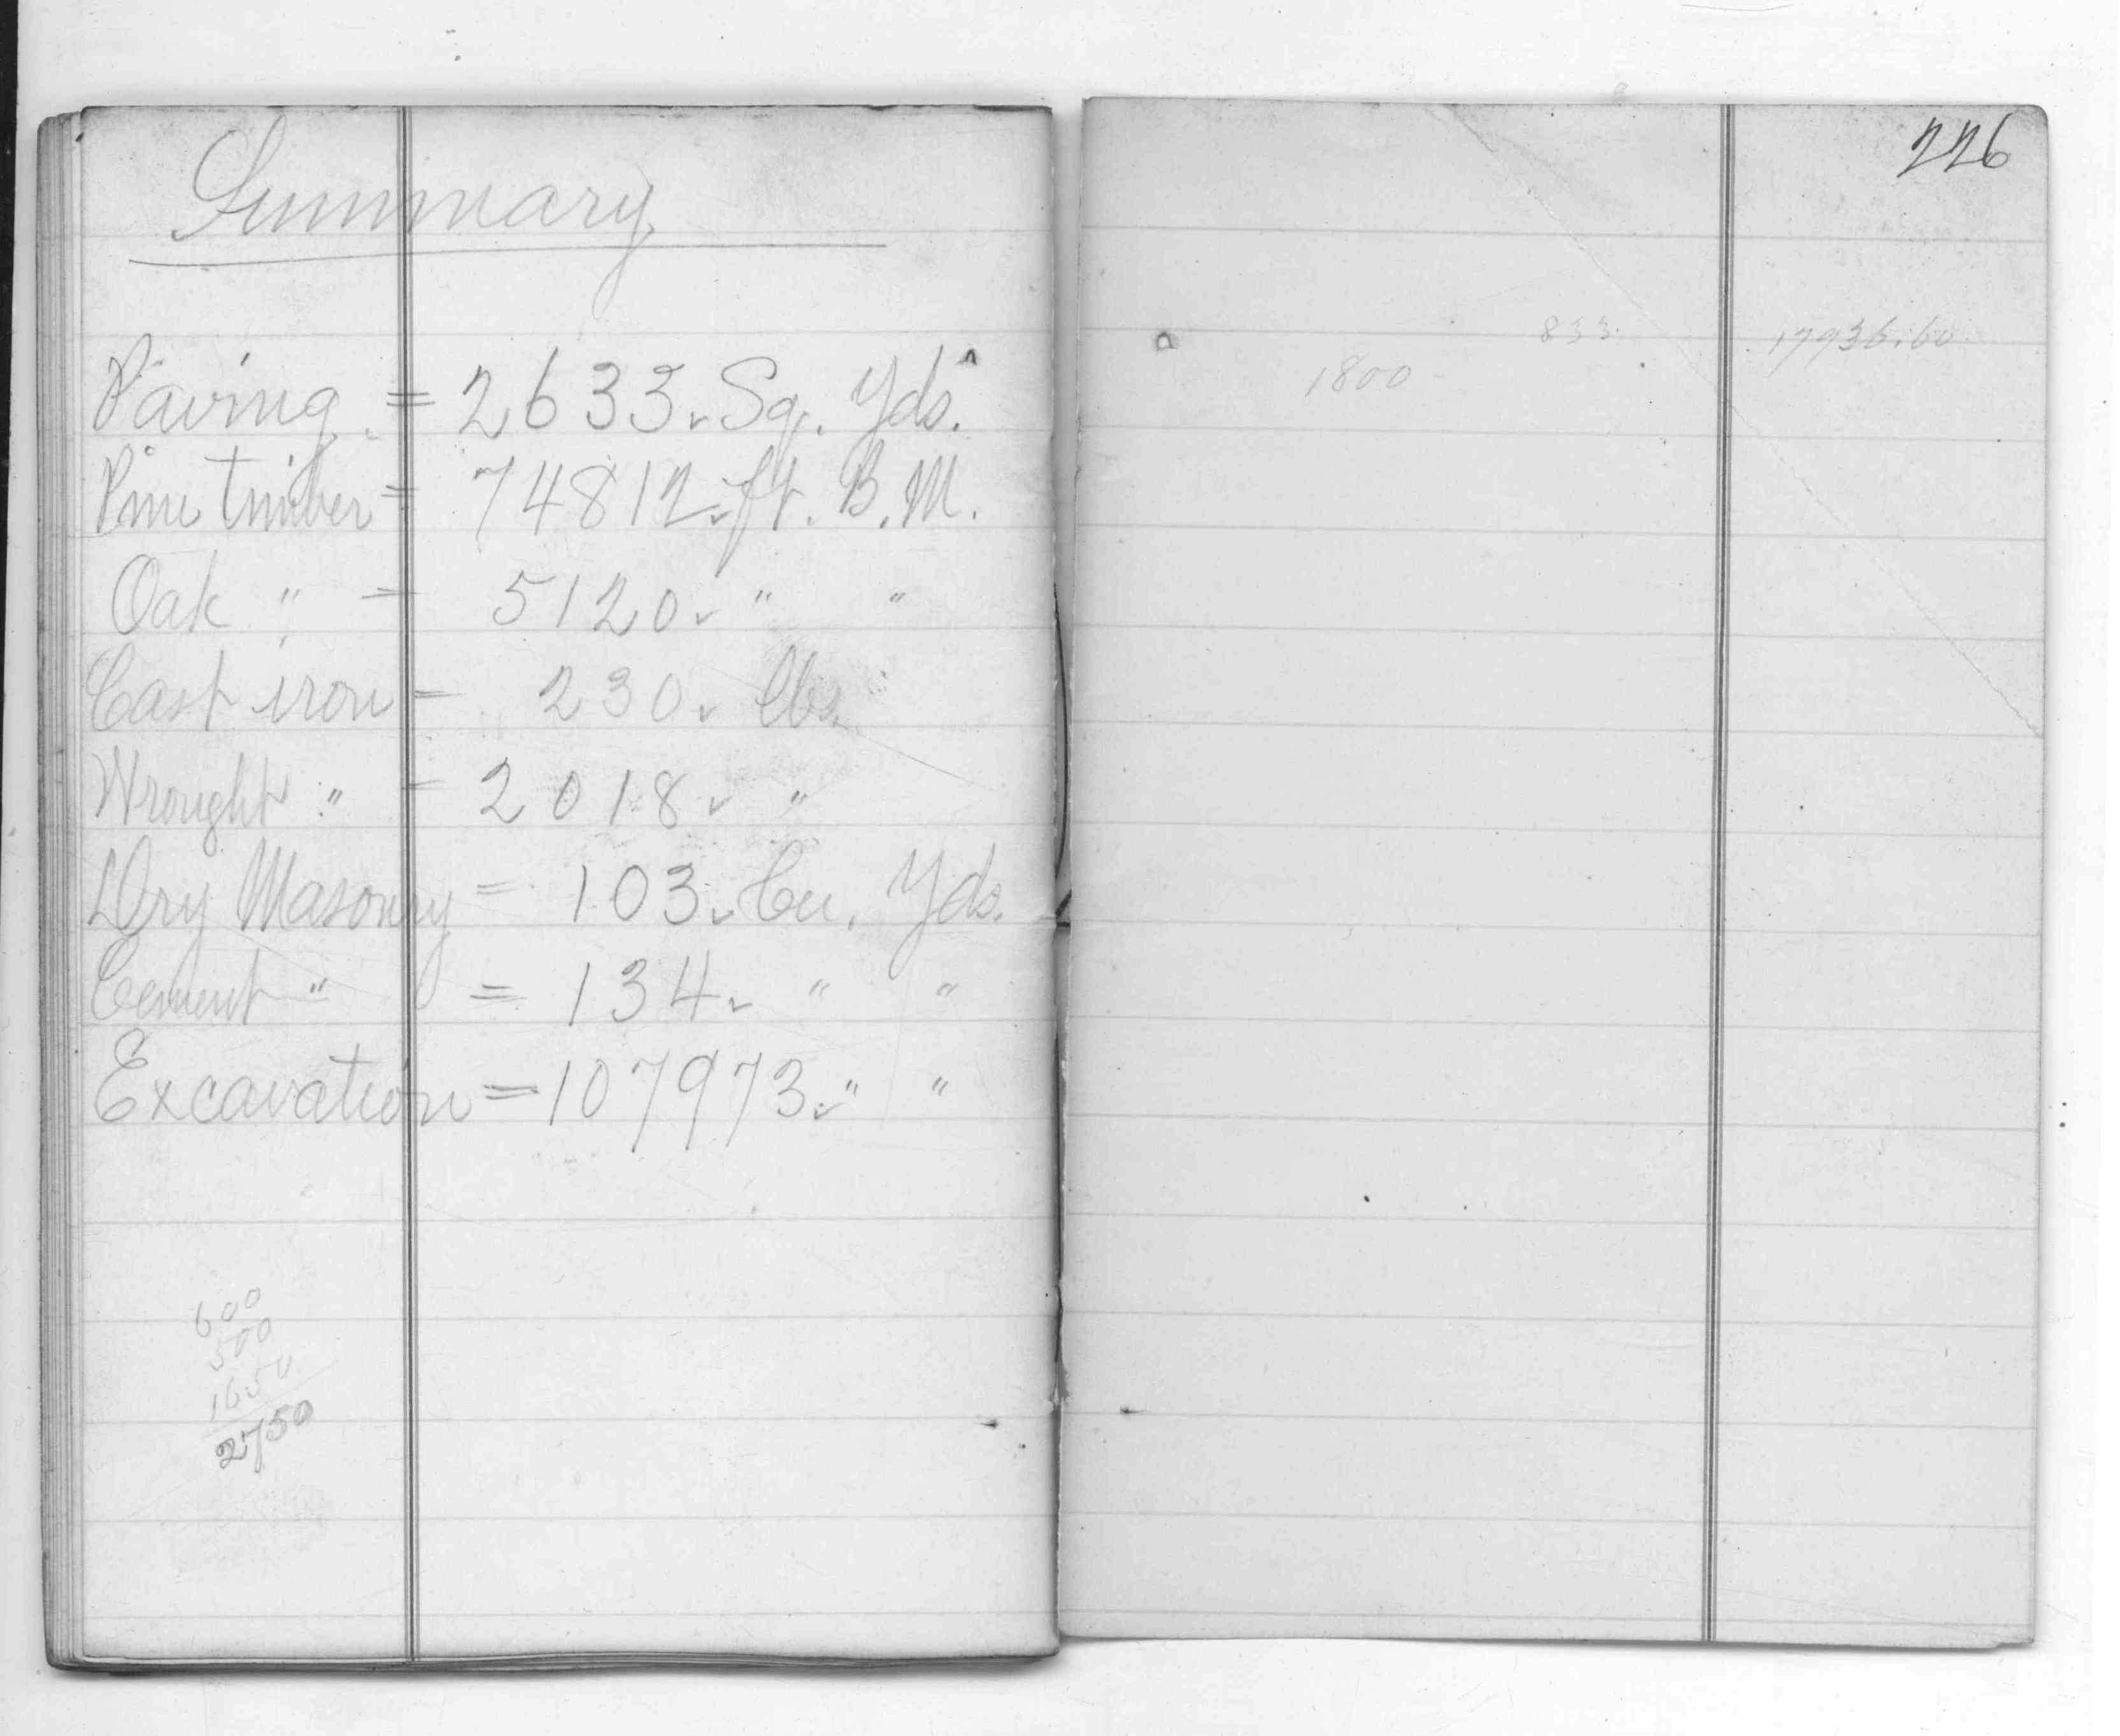 Summary
Paving = 2633 Sq. Yds.
Pine timber = 74812 ft. B.M.
Oak " = 5120 " "
Cast iron = 230 lbs.
Wrought " = 2018 " "
Dry Masonry = 103 Cu. Yds.
Cement " = 134 " "
Excavation = 107973 " "
600
500
1650
2750
226
833
1800
17936.60